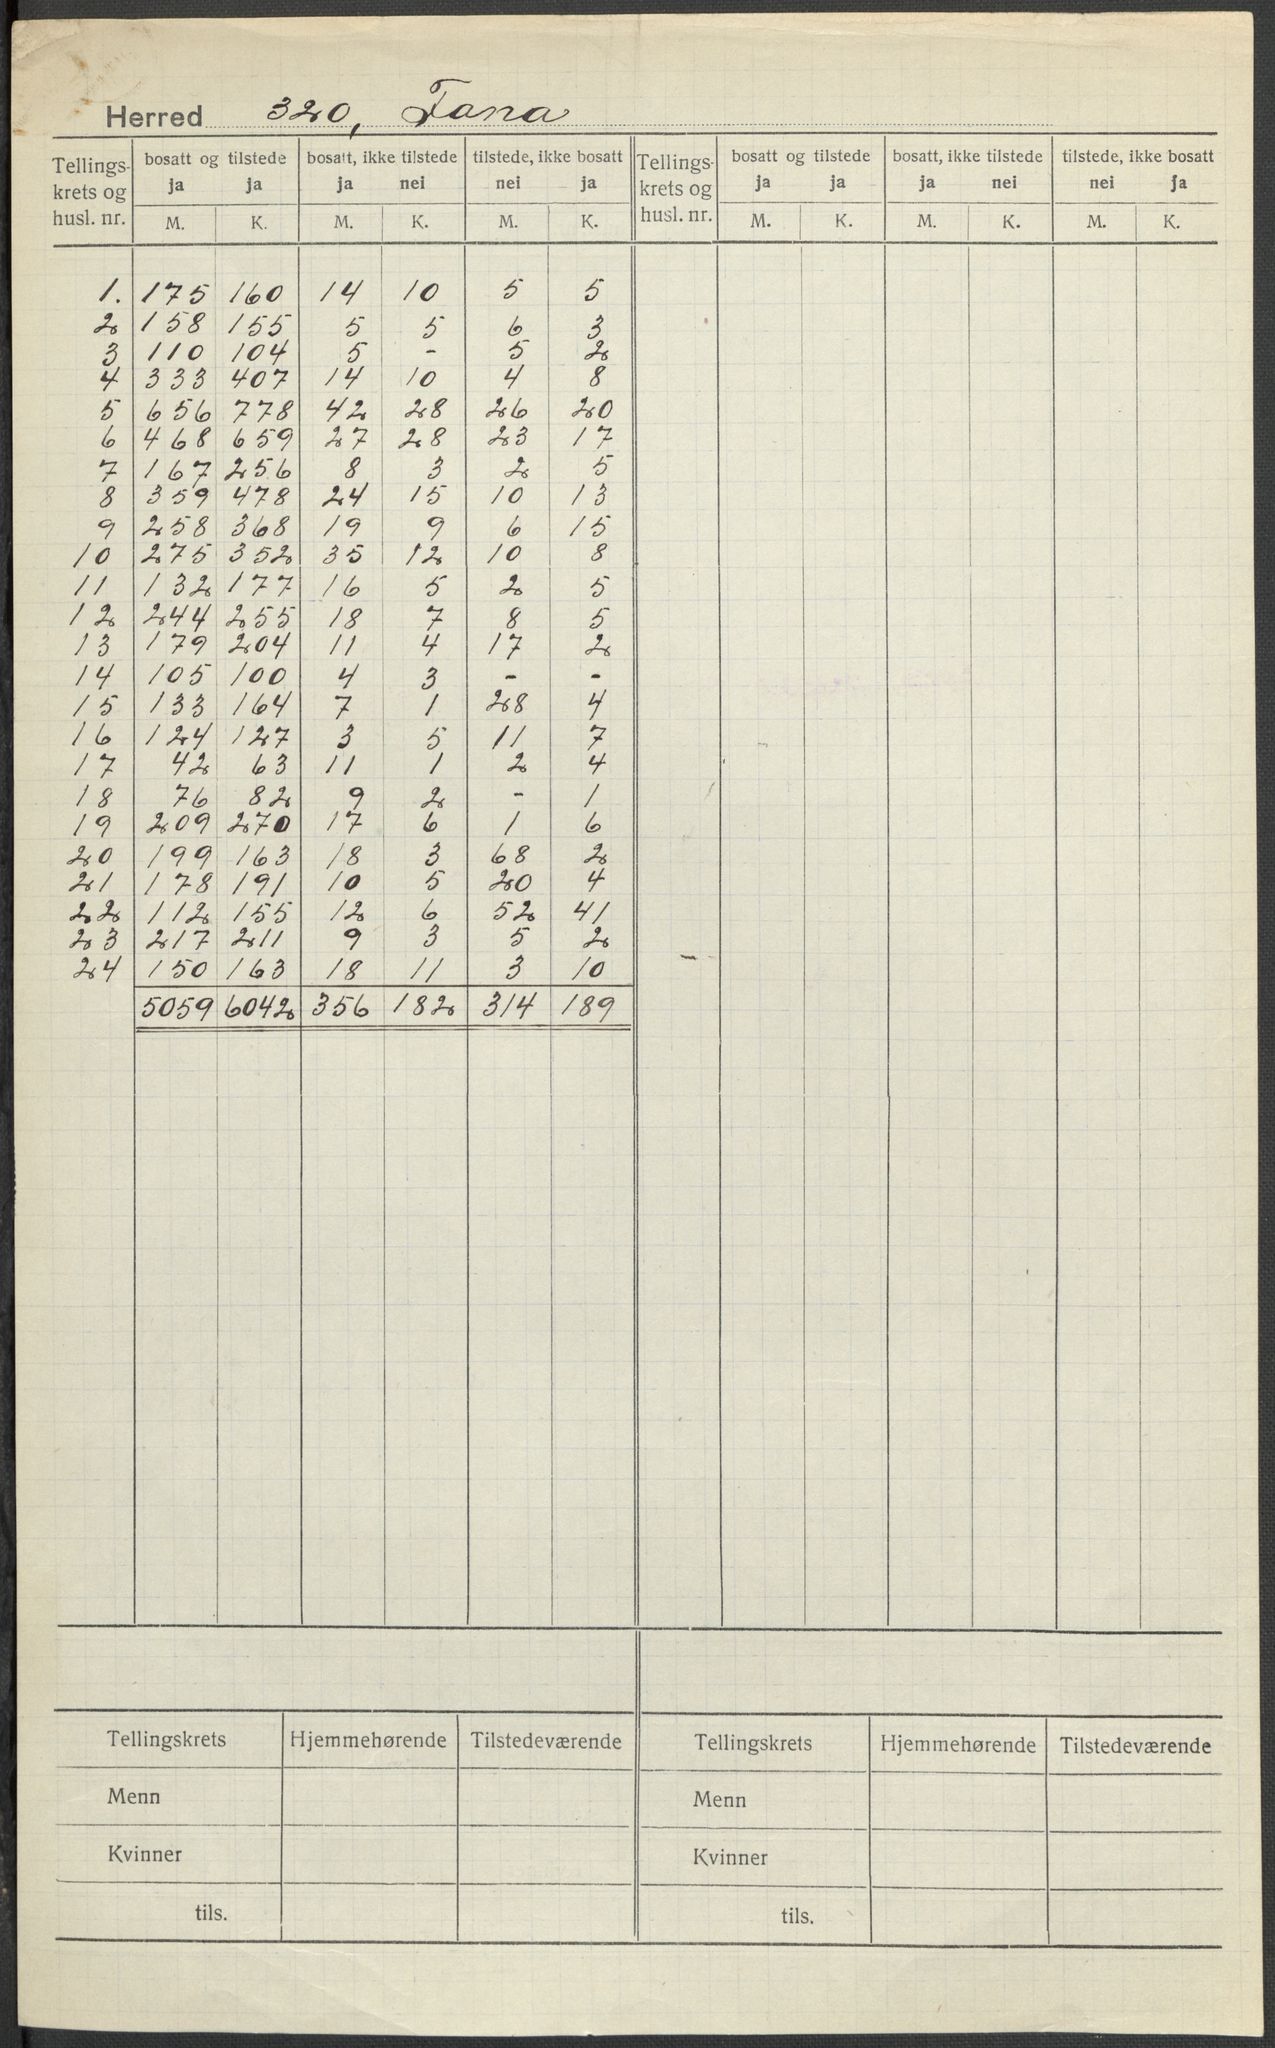 Herred 320, Fana
Tellings- krets og husl. nr. | bosatt og tilstede | bosatt, ikke tilstede | tilstede, ikke bosatt | Tellings- krets og husl. nr. | bosatt og tilstede | bosatt, ikke tilstede | tilstede, ikke bosatt
ja ja ja nei nei ja ja ja ja nei nei ja
M. K. M. K. M. K. M. K. M. K. M. K.
1. 175 160 14 10 5 5
2 158 155 5 5 6 3
3 110 104 5 - 5 2
4 333 407 14 10 4 8
5 656 778 42 28 26 20
6 468 659 27 28 23 17
7 167 256 8 3 2 5
8 359 478 24 15 10 13
9 258 368 19 9 6 15
10 275 352 35 12 10 8
11 132 177 16 5 2 5
12 244 255 18 7 8 5
13 179 204 11 4 17 2
14 105 100 4 3 - -
15 133 164 7 1 28 4
16 124 127 3 5 11 7
17 42 63 11 1 2 4
18 76 82 9 2 - 1
19 209 270 17 6 1 6
20 199 163 18 3 68 2
21 178 191 10 5 20 4
22 112 155 12 6 52 41
23 217 211 9 3 5 2
24 150 163 18 11 3 10
5059 6042 356 182 314 189
Tellingskrets Hjemmehørende Tilstedeværende Tellingskrets Hjemmehørende Tilstedeværende
Menn Menn
Kvinner Kvinner
tils. tils.